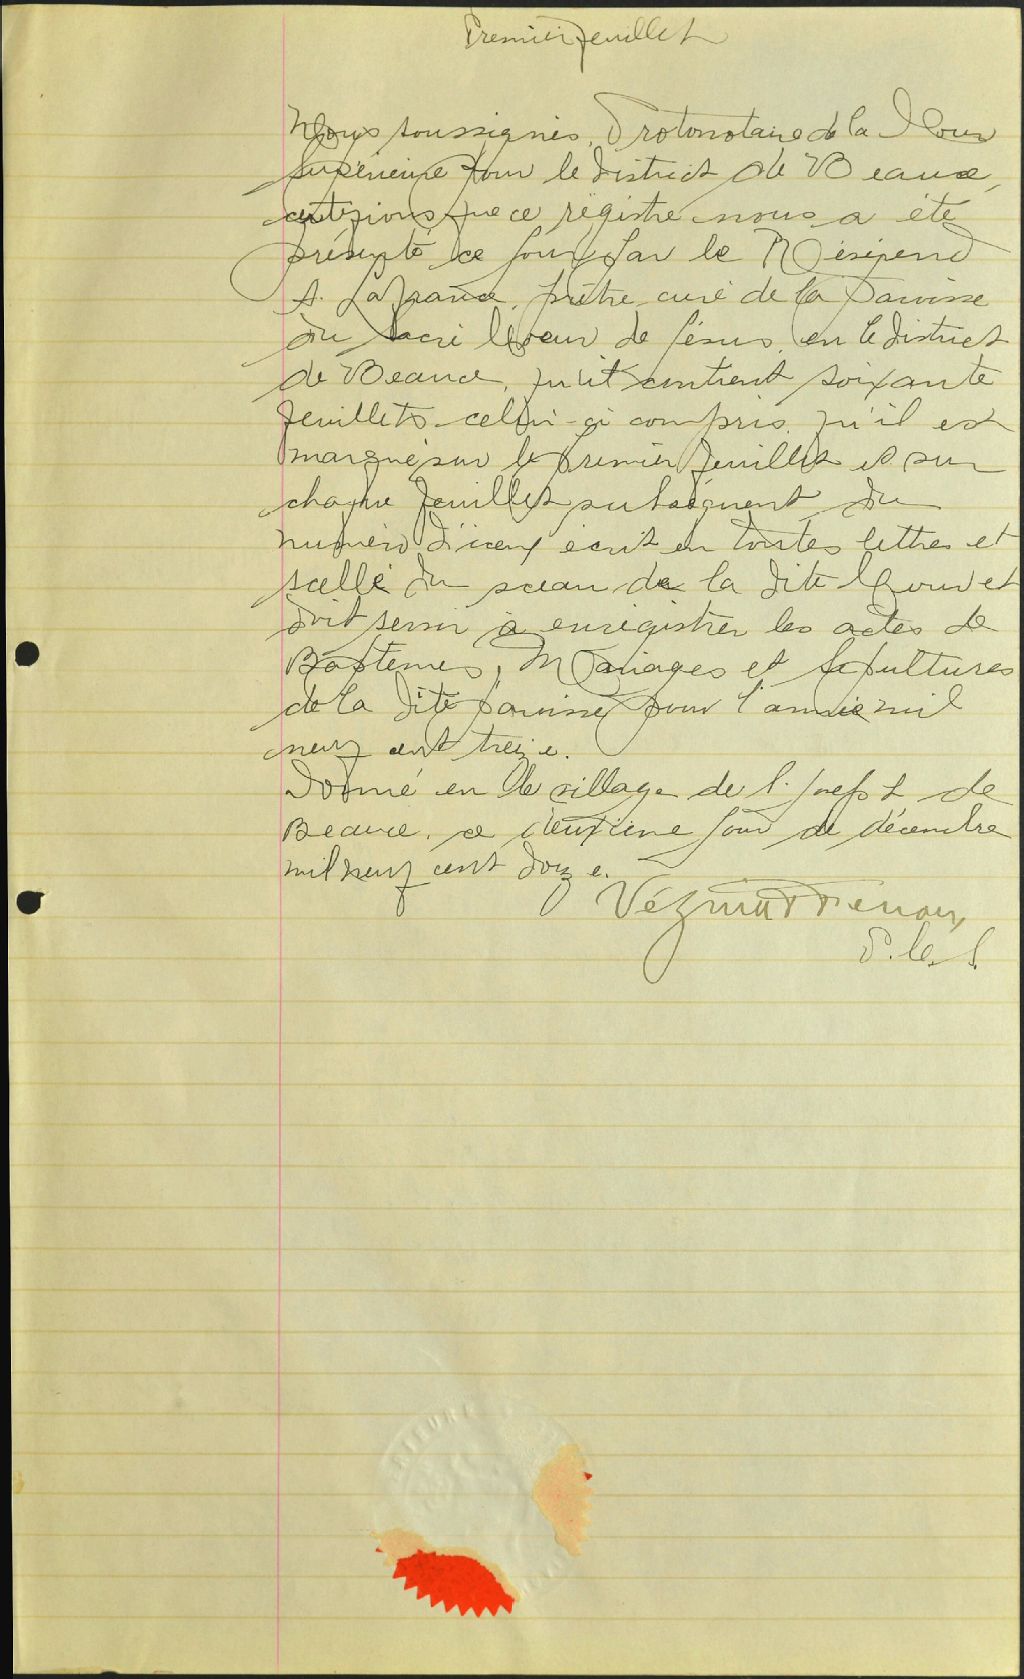 Premier feuillet
Nous soussignés, Protonotaire de la Cour
Supérieure pour le district de Beauce,
certifions que ce régistre nous a été
présenté ce jour par le Révérend
A. Lafrance, prêtre, curé de la Paroisse
du Sacré Coeur de Jésus, en le district
de Beauce, qu'il contient soixante
feuillets celui-ci compris, qu'il est
marqué sur le premier feuillet et sur
chaque feuillet subséquent du
numéro d'iceux écrit en toutes lettres et
scellé du sceau de la dite Cour et
doit servir à enrégistrer les actes de
Baptêmes, Mariages et Sépultures
de la dite paroisse pour l'année mil
neuf cent treize.
Donné en le village de S. Joseph de
Beauce, ce deuxième jour de décembre
mil neuf cent douze.
Vézina
P.C.S.